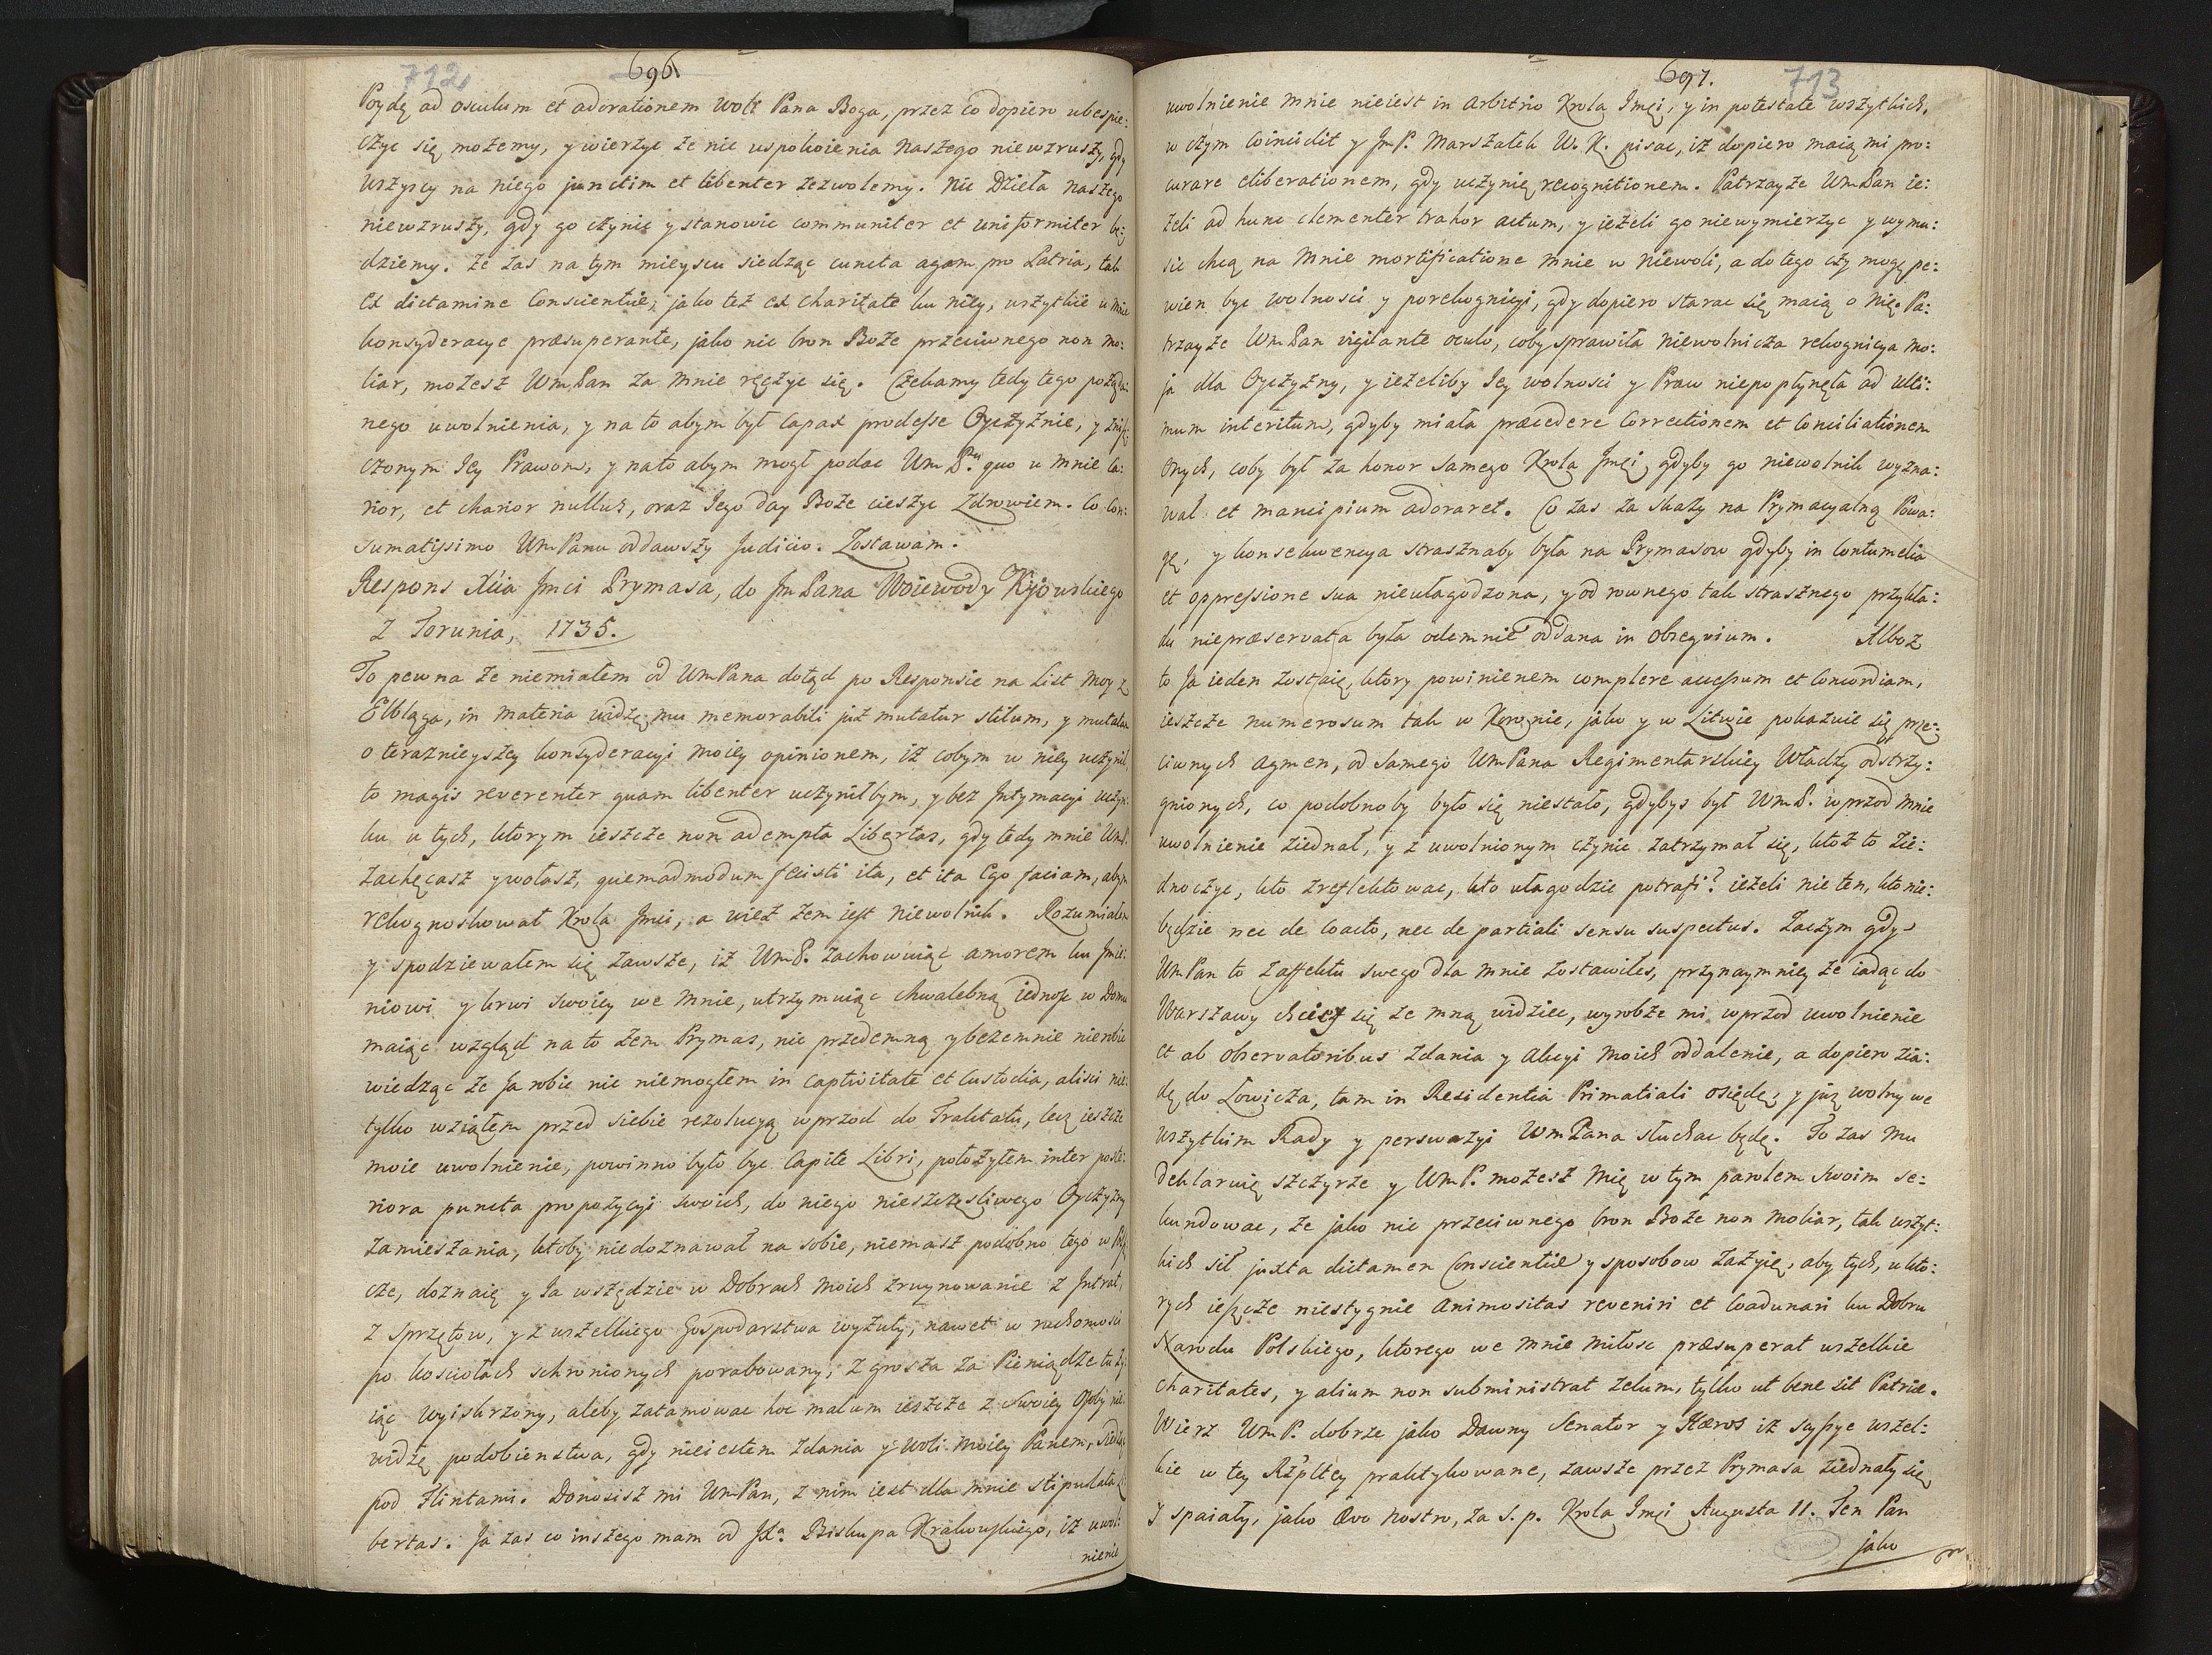 712
696
Poydę ad osculum et adorationem woli Pana Boga, przez co dopiero ubespie:
czyc się możemy, y wierzyc że nic uspokoienia naszego niewzruszy, gdy
wszyscy na niego junctim et libenter zezwolemy. Nic Dzieła naszego
niewzruszy, gdy go czynic y stanowic communiter et uniformiter bę:
dziemy. Ze zas na tym mieyscu siedząc cuncta agam pro Patria, tak
ex dictamine Conscientiæ, jako tez ex charitate ku niey, wszytkie u mnie
konsyderacye præsuperante, jako nic bron Boże przeciwnego non mo:
liar, możesz WmPan za mnie ręczyc się. Czekamy tedy tego pożąda:
nego uwolnienia, y na to abym był capax prodesse Oyczyznie, y
czonym Jey Prawom, y nato abym mogł podac Wm P. quo u mnie ca:
rior, et charior nullus, oraz Jego day Boże cieszyc Zdrowiem. Co Con:
sumatissimo WmPanu oddawszy Judicio. Zostawam.
Respons Xcia Jmci Prymasa, do JmPana Woiewody Kyiowskiego
z Torunia, 1735.
To pewna że niemiałem od WmPana dotąd po Responsie na List moy z
Elbląga, in materia widzę mu memorabili już mutatur stilum, y mutatam
o teraznieyszey konsyderacyi moiey opinionem, iż cobym w niey uczynił,
to magis reverenter quam libenter uczyniłbym, y bez Jntymacyi uczyn:
ku u tych, ktorym ieszcze non adempta Libertas, gdy tedy mnie WmP.
zachęcasz y wołasz, quemadmodum fecisti ita, et ita Ego faciam, abym
rekognoskował Krola Jmci, a wiesz żem jest niewolnik. Rozumiałem
y spodziewałem się zawsze, iż WmP. zachowuiąc amorem ku Jmie:
niowi y krwi swoiey we mnie, utrzymuiąc chwalebną jednosc w Domu
maiąc wzgląd na to żem Prymas, nic przedemną y bezemnie nierobic
wiedząc że Ja robic nic niemogłem in captivitate et custodia, alisci nie:
tylko wziąłem przed siebie rezolucyą wprzod do Traktatu, lecz ieszcze
moie uwolnienie, powinno było byc Capite Libri, położyłem inter poste:
riora puncta propozycyi swoich, do niego nieszczęsliwego Oyczyzny
zamieszania, ktoby niedoznawał na sobie, niemasz podobno tego w
cze, doznaię y Ja wszędzie w Dobrach moich zruynowanie z Jntrat,
z sprzętow, y z wszelkiego gospodarstwa wyzuty, nawet w ruchomosci
po kosciołach schronionych porabowany, z grosza za Pieniądze tu ży:
iąc wyiskrzony, aleby zatamowac hoc malum ieszcze z swoiey Osoby nie:
widzę podobienstwa, gdy nieiestem zdania y woli moiey Panem, siedząc
pod Flintami. Donosisz mi WmPan, z nim iest dla mnie stipulata Li:
bertas. Ja zas co inszego mam od JXa. Biskupa Krakowskiego, iż uwol:
nienie
697.
713
uwolnienie mnie nieiest in arbitrio Krola Jmci, y in potestate wszytkich,
w czym coincidit y JmP. Marszałek W. K. pisac, iż dopiero maią mi pro:
curare eliberationem, gdy uczynię recognitionem. Patrzayże WmPan ie:
żeli ad hunc clementer trahor actum, y ieżeli go niewymierzyc y wymu:
sic chcą na mnie mortificatione mnie w niewoli, a do tego czy mogę pe:
wien byc wolnosci y porekognicyi, gdy dopiero starac się maią o nię. Pa:
trzayże WmPan vigilante oculo, coby sprawiła niewolnicza rekognicya mo:
ja dla Oyczyzny, y ieżeliby Jey wolnosci y Praw niepopłynęła ad ulti:
mum interitum, gdyby miała præcedere Correctionem et Conciliationem
onych, coby był za honor samego Krola Jmci, gdyby go niewolnik wyzna:
wał et mancipium adoraret. Co zas za skazy na Prymacyalną Powa:
gę, y konsekwencya straszna by była na Prymasow gdyby in contumelia
et oppressione sua nieułagodzona, y od rownego tak strasznego przykła:
du niepræservata była odemnie oddana in obsequium. Alboż
to Ja ieden zostaię, ktory powinienem complere accessum et Concordiam,
ieszcze numerosum tak w Koronie, jako y w Litwie pokazuie się prze:
ciwnych agmen, od samego WmPana Regimentarskiey Władzy odstrzy:
gnionych, co podobno by było się niestało, gdybys był WmP. wprzod mnie
uwolnienie ziednał, y z uwolnionym czynic zatrzymał się, ktoż to zie:
dnoczyc, kto zreflektowac, kto ułagodzic potrafi? ieżeli nie ten, kto nie:
będzie nec de coacto, nec de partiali sensu suspectus. Zaczym gdy
WmPan to z affektu swego dla mnie zostawiłes, przynaymniey że iadąc do
Warszawy chciey się ze mną widziec, wyrobże mi wprzod uwolnienie
et ab observatoribus zdania y akcyi moich oddalenie, a dopiero zia:
dę do Łowicza, tam in Residentia Primatiali osiędę, y już wolny we
wszytkim Rady y perswazyi WmPana słuchac będę. To zas mu
deklaruię szczyrze y WmP. możesz mię w tym parolem swoim se:
kundowac, że jako nic przeciwnego bron Boże non moliar, tak wszyt:
kich sił juxta dictamen Conscientiæ y sposobow zażyię, aby tych, u kto:
rych ieszcze niestygnie animositas reveniri et coadunari ku Dobru
Narodu Polskiego, ktorego we mnie miłosc præsuperat wszelkie
charitates, y alium non subministrat zelum, tylko ut bene sit Patriæ.
Wierz WmP. dobrze jako Dawny Senator y Hæros iż scyssye wszel:
kie w tey Rzpltey praktykowane, zawsze przez Prymasa ziednały się
y spaiały, jako ævo nostro, za s. p. Krola Jmci Augusta II. Ten Pan
jako